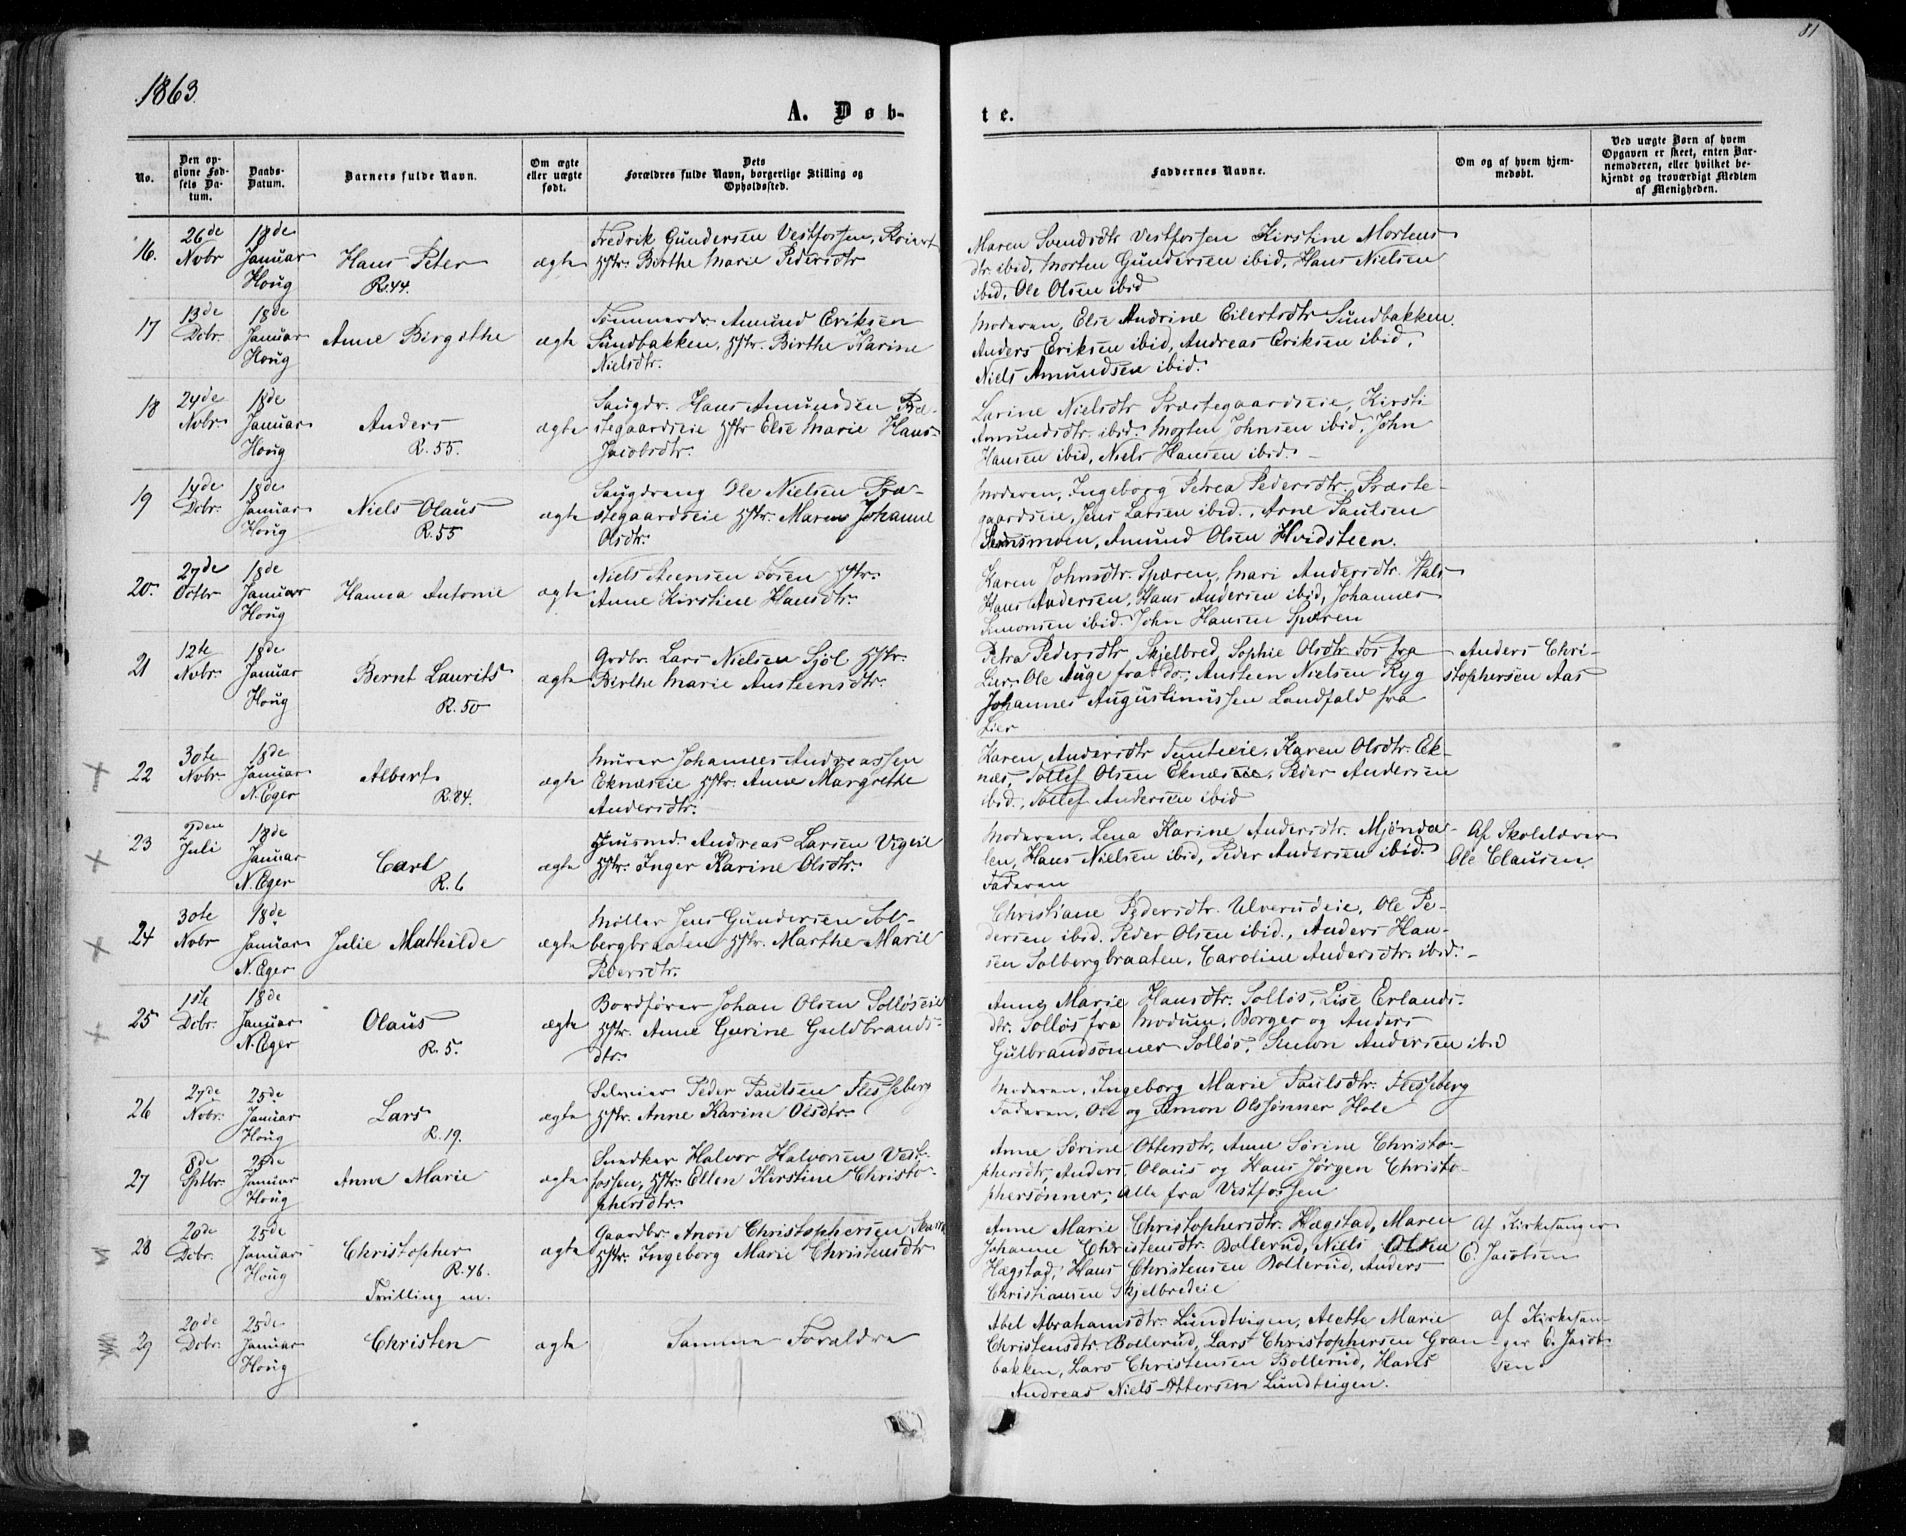 1863.
81
A. Døb-
te.
No.
Den opgivne Fødsels Datum.
Daabs-Datum.
Barnets fulde Navn.
Om ægte eller uægte født.
Dets Forældres fulde Navn, borgerlige Stilling og Opholdssted.
Faddernes Navne.
Om og af hvem hjemmedøbt.
Ved uægte Børn af hvem Opgaven er skeet, enten Barnemoderen, eller hvilket bekjendt og troværdigt Medlem af Menigheden.
16.
26de Novbr
18de Januar Houg
Hans Peter
R.44.
ægte
Fredrik Gundersen Vestfossen,
Hstr. Berthe Marie Pedersdtr
Maren Svendsdtr Vestfossen Kirstine Mortens
dtr. ibid, Morten Gundersen ibid, Hans Nielsen
ibid, Ole Olsen ibid
17
13de Dcbr.
18de Januar Houg
Anne Birgithe
ægte
Tømmerdr. Amund Eriksen
Sundbakken, Hstr. Birthe Karine
Nielsdtr.
Moderen, Else Andrine Eilertsdtr Sundbakken.
Anders Eriksen ibid, Andreas Eriksen ibid,
Niels Amundsen ibid.
18
24de Novbr.
18de Januar Houg
Anders
R.55.
ægte
Saugdr. Hans Amundsen Præ-
stegaardseie Hstr Else Marie Hans-
Jacobsdtr.
Larine Nielsdtr Præstegaardseie, Kirsti
Amundsdtr. ibid. Morten Johnsen ibid, John
Hansen ibid, Niels Hansen ibid.
19
14de Dcbr.
18de Januar Houg
Niels Olaus
R.55
ægte
Saugdreng Ole Nielsen Præ-
stegaardseie Hstr. Maren Johanne
Olsdtr.
Moderen, Ingeborg Petrea Pedersdtr. Præste-
gaardseie, Jens Larsen ibid., Arne Paulsen
Semsmoen, Amund Olsen Hvidsteen.
20.
27de Octbr.
18de Januar Houg
Hanna Antonie
ægte
Niels Auensen Fosen Hstr.
Anne Kirstine Hansdtr.
Karen Johnsdtr. Spæren, Mari Andersdtr. Hals
Hans Andersen, Hans Andersen ibid, Johannes
Simonsen ibid. John Hansen Spæren
21
12te Novbr.
18de Januar Houg
Bernt Laurits
R.50
ægte
Grdbr. Lars Nielsen Sjøl Hstr.
Birthe Marie Austeensdtr.
Petra Pedersdtr Skjelbred, Sophie Olsdtr Fos fra
Lier. Ole Auge fra do., Austeen Nielsen Ryg
Johannes Augustinussen Landfald fra
Lier
Anders Chri-
stophersen Aas
22
30te Novbr
18de Januar N. Eger
Albert
R.84.
ægte
Murer Johannes Andreassen
Eknæseie Hstr. Anne Margrethe
Andersdtr.
Karen, Andersdtr Temteeie. Karen Olsdtr. Ek-
næs, Tollef Olsen Eknæseie, Peder Andersen
ibid, Tollef Andersen ibid
23
2den Juli
18de Januar N. Eger
Carl
R.6
ægte
Husmd. Andreas Larsen Vigeie
Hstr. Inger Karine Olsdtr.
Moderen, Lena Karine Andersdtr. Mjønda-
len, Hans Nielsen ibid, Peder Andersen ibid.
Faderen
Af Skolelærer
Ole Clausen.
24
30te Novbr
18de Januar N. Eger
Julie Mathilde
ægte
Møller Jens Gundersen Sol-
bergbraaten Hstr. Marthe Marie
Pedersdtr.
Christiane Pedersdtr. Ulverudeie, Ole Pe-
dersen ibid. Peder Olsen ibid., Anders Han-
sen Solbergbraaten, Caroline Andersdtr. ibid.
25
1ste Dcbr.
18de Januar N. Eger
Olaus
R.5.
ægte
Bordfører Johan Olsen Solløseie
Hstr. Anne Gurine Guldbrands-
dtr.
Anne Marie Hansdtr. Solløs, Lise Erlands-
dtr. Solløs fra Modum, Borger og Anders
Gulbrandsønner Solløs, Simon Andersen ibid
26
27de Novbr.
25de Januar Houg
Lars
R.19.
ægte
Selveier Peder Paulsen Flesseberg
Hstr. Anne Karine Olsdtr.
Moderen, Ingeborg Marie Paulsdtr. Flesseberg
Faderen, Ole og Simon Olssønner Hole
27
8de Sptbr.
25de Januar Houg
Anne Marie
ægte
Snedker Halvor Halvorsen Vest-
fossen, Hstr. Ellen Kirstine Christo-
phersdtr.
Anne Sørine Ottersdtr, Anne Sørine Christo-
phersdtr, Anders Olaus og Hans Jørgen Christo-
phersønner, alle fra Vestfossen
28
20de Dcbr.
25de Januar Houg
Christopher
R.46.
Trilling m.
ægte
Gaardbr. Anon Christophersen
Hstr. Ingeborg Marie Christensdtr
Anne Marie Christophersdtr. Hægstad, Maren
Johanne Christensdtr. Bollerud, Niels Olsen
Hægstad, Hans Christensen Bollerud, Anders
Christiansen Skjelbredeie
Af Kirkesanger
E. Jacobsen
29
20de Dcbr.
25de Januar Houg
Christen
ægte
Samme Forældre
Abel Abrahamsdtr. Lundteigen, Anette Marie
Christensdtr. Bollerud, Lars Christophersen Gran
bakken, Lars Christensen Bollerud, Hans
Andreas Niels Ottersen Lundteigen.
af Kirkesan-
ger E. Jacob-
sen